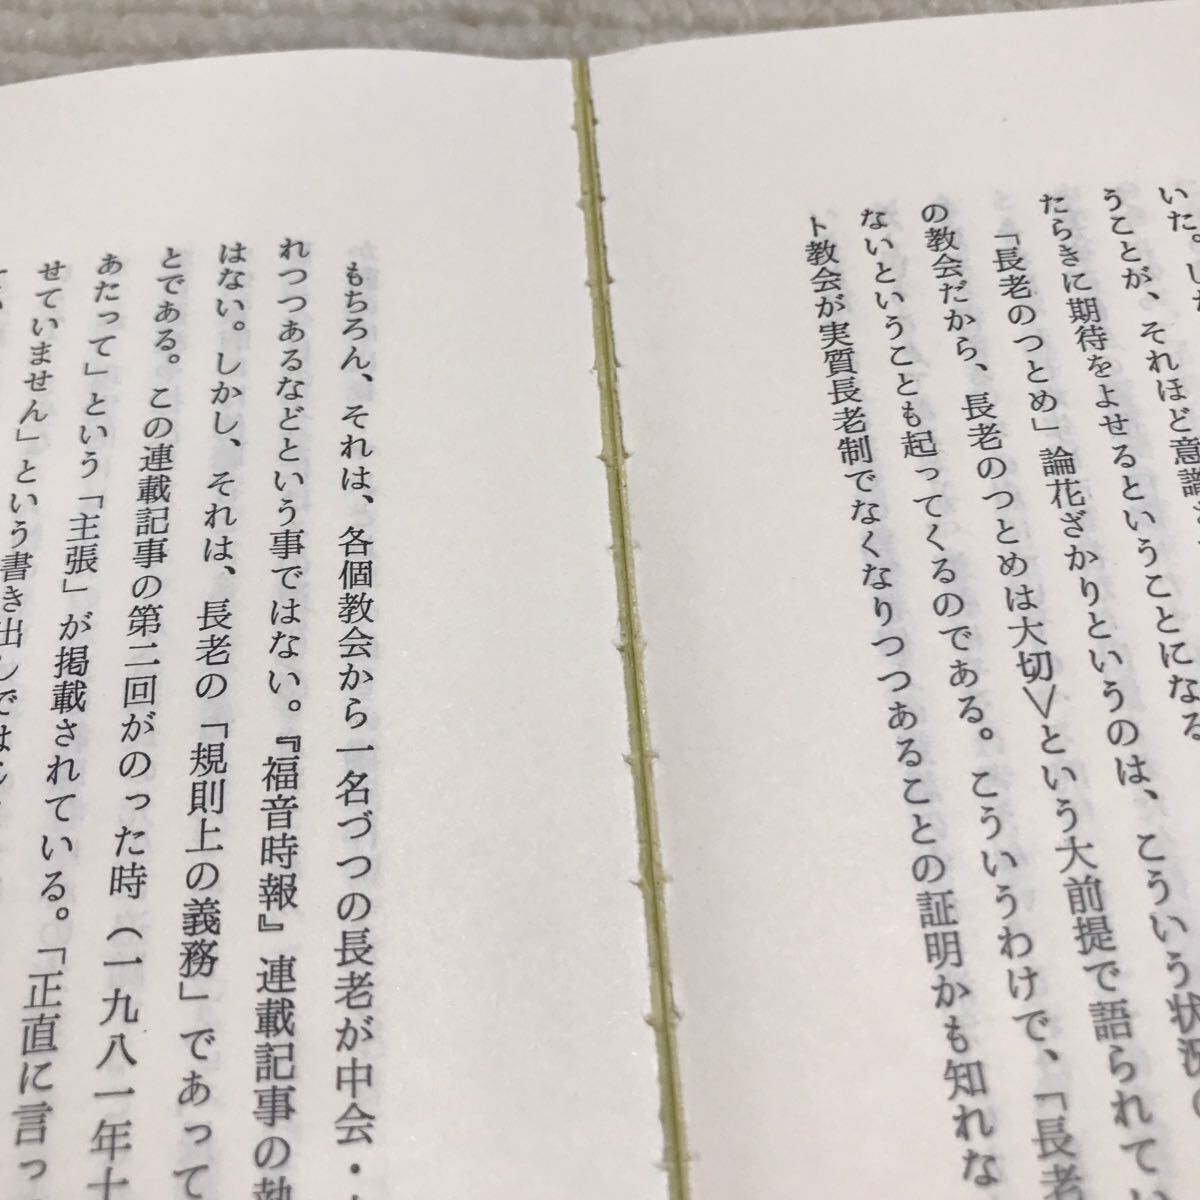 いた。しか
うことが、それほど意識さ
たらきに期待をよせるということになる
「長老のつとめ」論花ざかりというのは、こういう状況の
の教会だから、長老のつとめは大切＞という大前提で語られてい
ないということも起ってくるのである。こういうわけで、「長老
ト教会が実質長老制でなくなりつつあることの証明かも知れな
もちろん、それは、各個教会から一名づつの長老が中会・
れつつあるなどという事ではない。『福音時報』連載記事の執
はない。しかし、それは、長老の「規則上の義務」であって
とである。この連載記事の第二回がのった時（一九八一年十
あたって」という「主張」が掲載されている。「正直に言っ
せていません」という書き出しでは